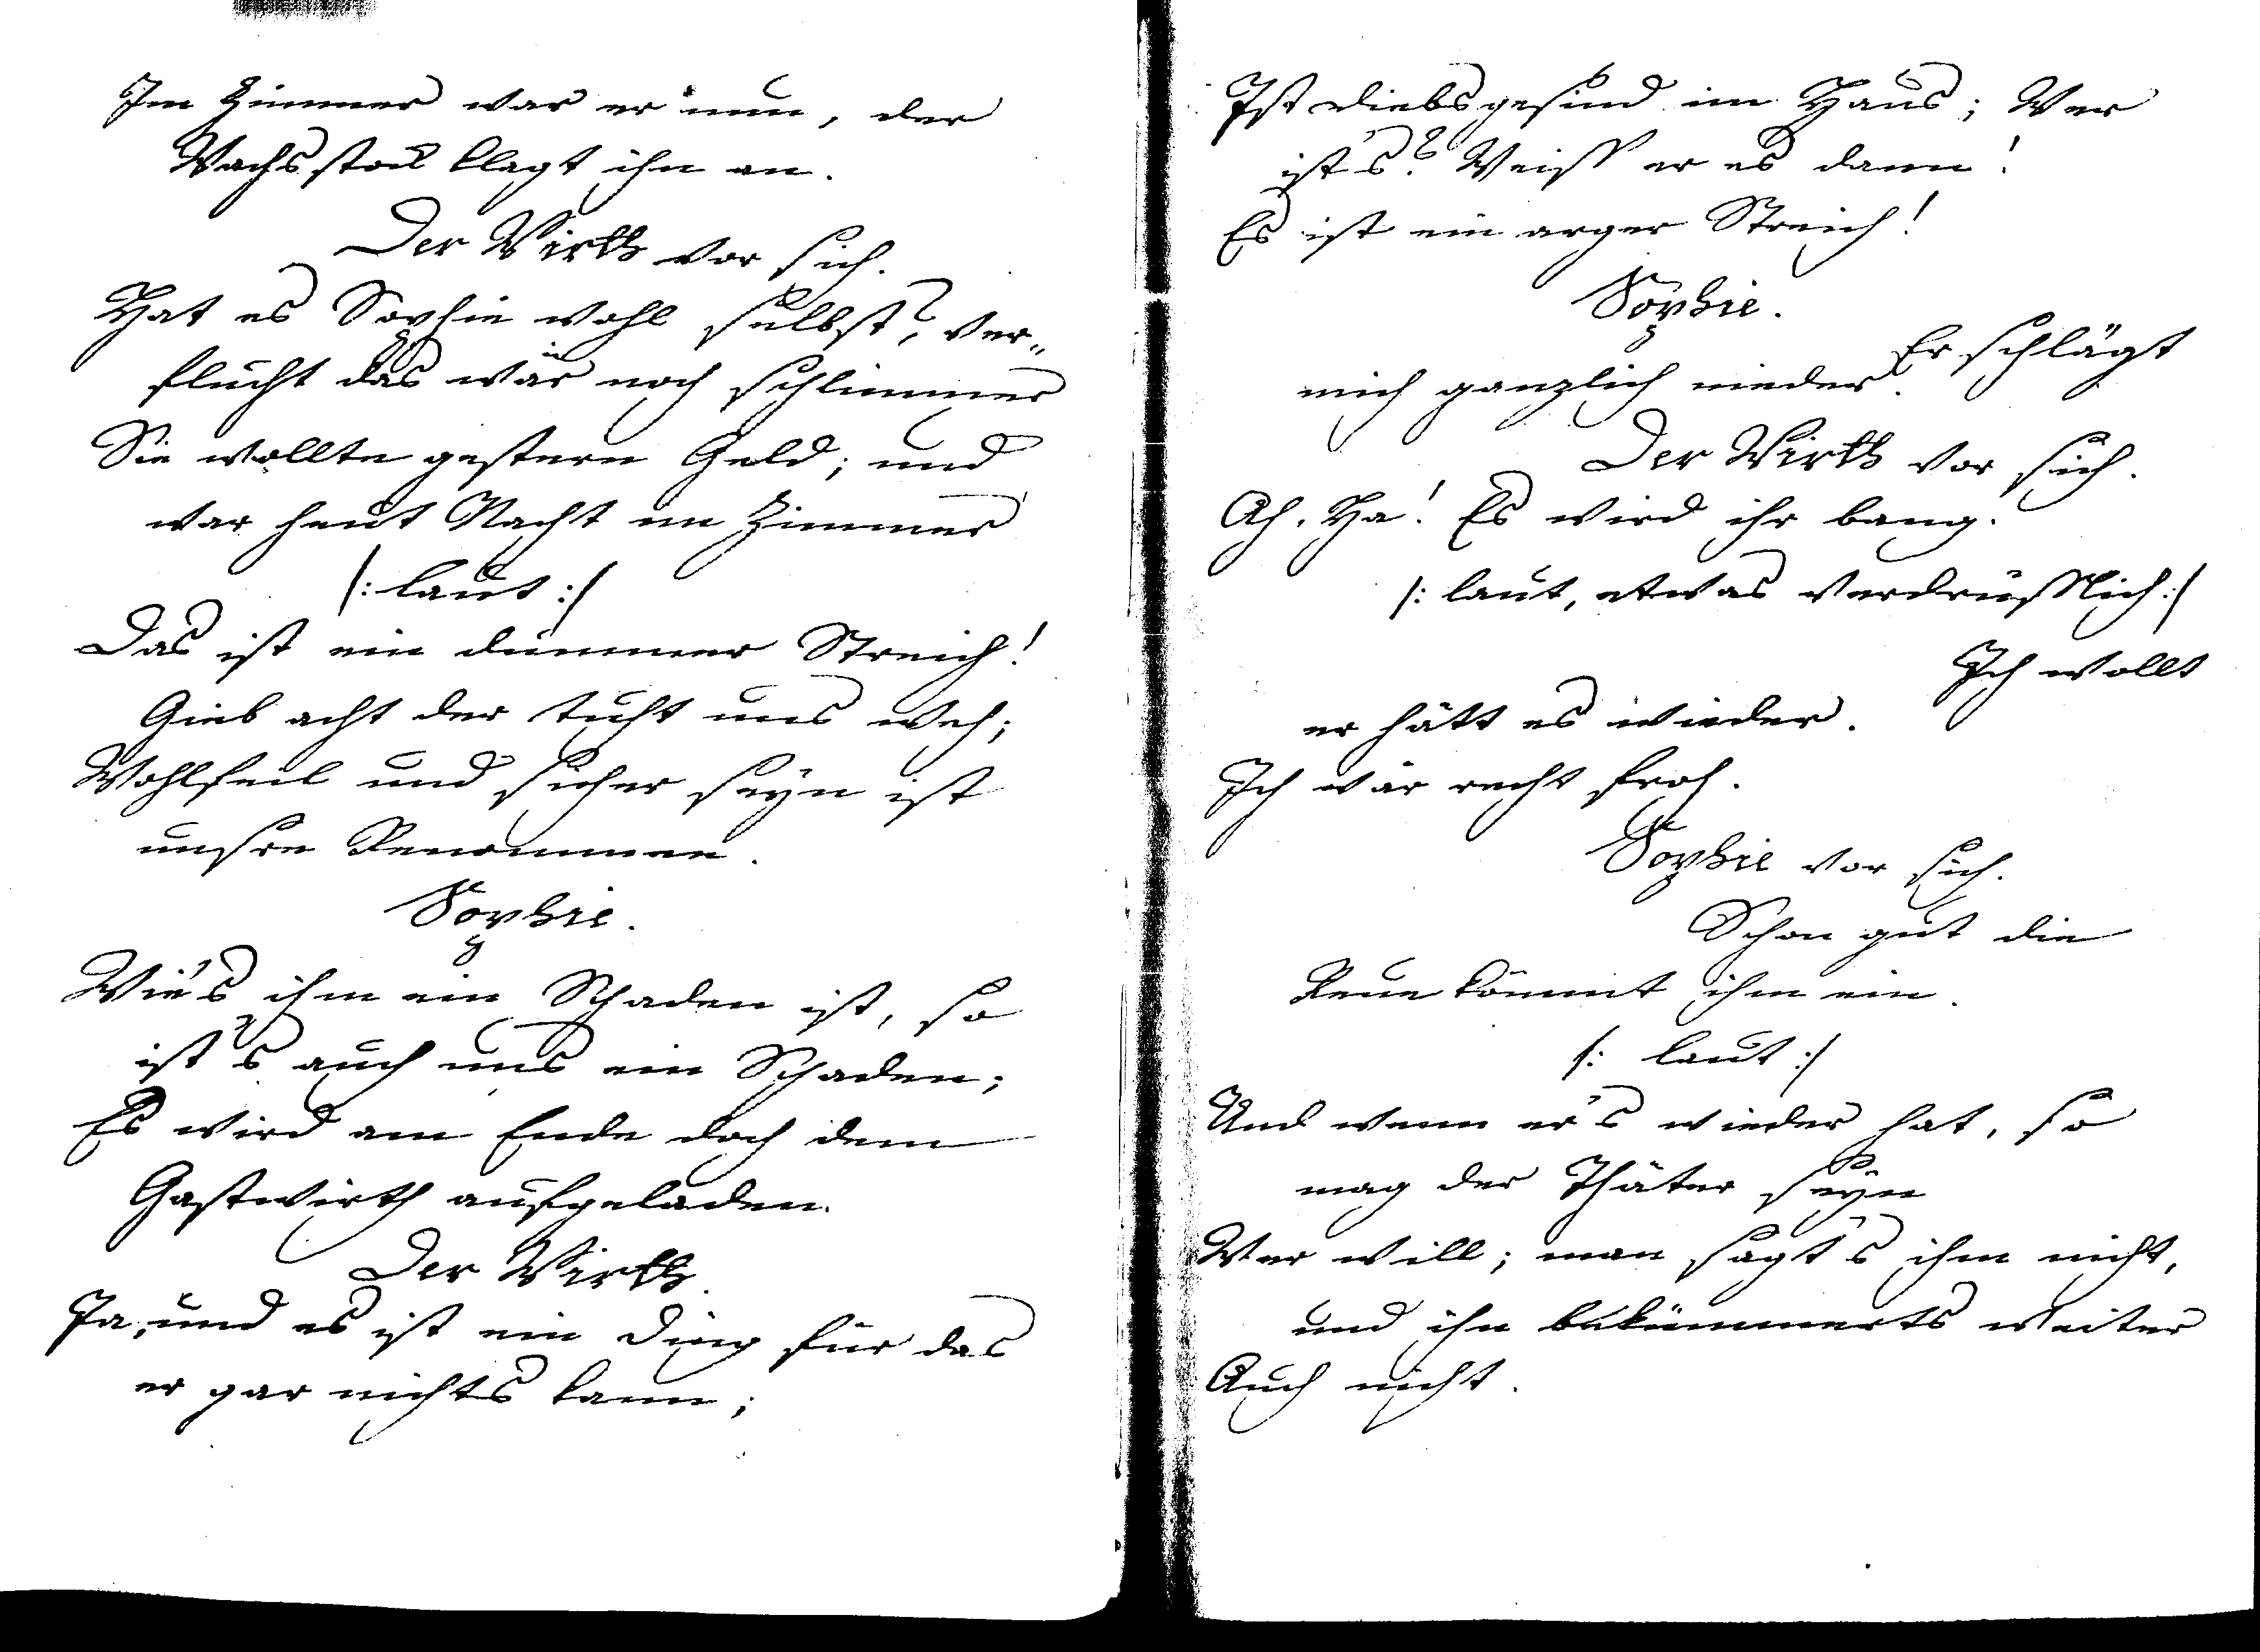 Im Zimmer war er nun, der
Wachsstock klagt ihn an.
Der Wirth vor sich.
Hat es Sophie wohl selbst? Ver„
flucht das wär noch schlimmer
Sie wollte gestern Geld; und
war heut Nacht im Zimmer
/: laut :/
Das ist ein dummer Streich!
Gieb acht der tuht uns weh;
Wohlfeil und sicher seyn ist
unsre Renommee.
Sophie.
Wie's ihm ein Schaden ist, so
ist's auch uns ein Schaden;
Es wird am Ende doch dem
Gastwirth aufgeladen.
Der Wirth.
Ja, und es ist ein Ding für das
er gar nichts kann;
Ist Diebsgesind im Haus; Wer
ist's? Weiss er es dann!
Es ist ein arger Streich!
Sophie.
Er schlägt
mich ganzlich nieder.
Der Wirth vor sich.
Ah, Ha! Es wird ihr bang.
/: laut, etwas verdrüsslich :/
Ich wollt
er hätt es wieder.
Ich wär recht froh.
Sophie vor sich.
Schon gut die
Reue kömmt ihm ein.
/: laut :/
Und wenn er's wieder hat, so
mag der Thäter seyn
Wer will; man sagt's ihm nicht,
und ihn bekümmerts weiter
Auch nicht.